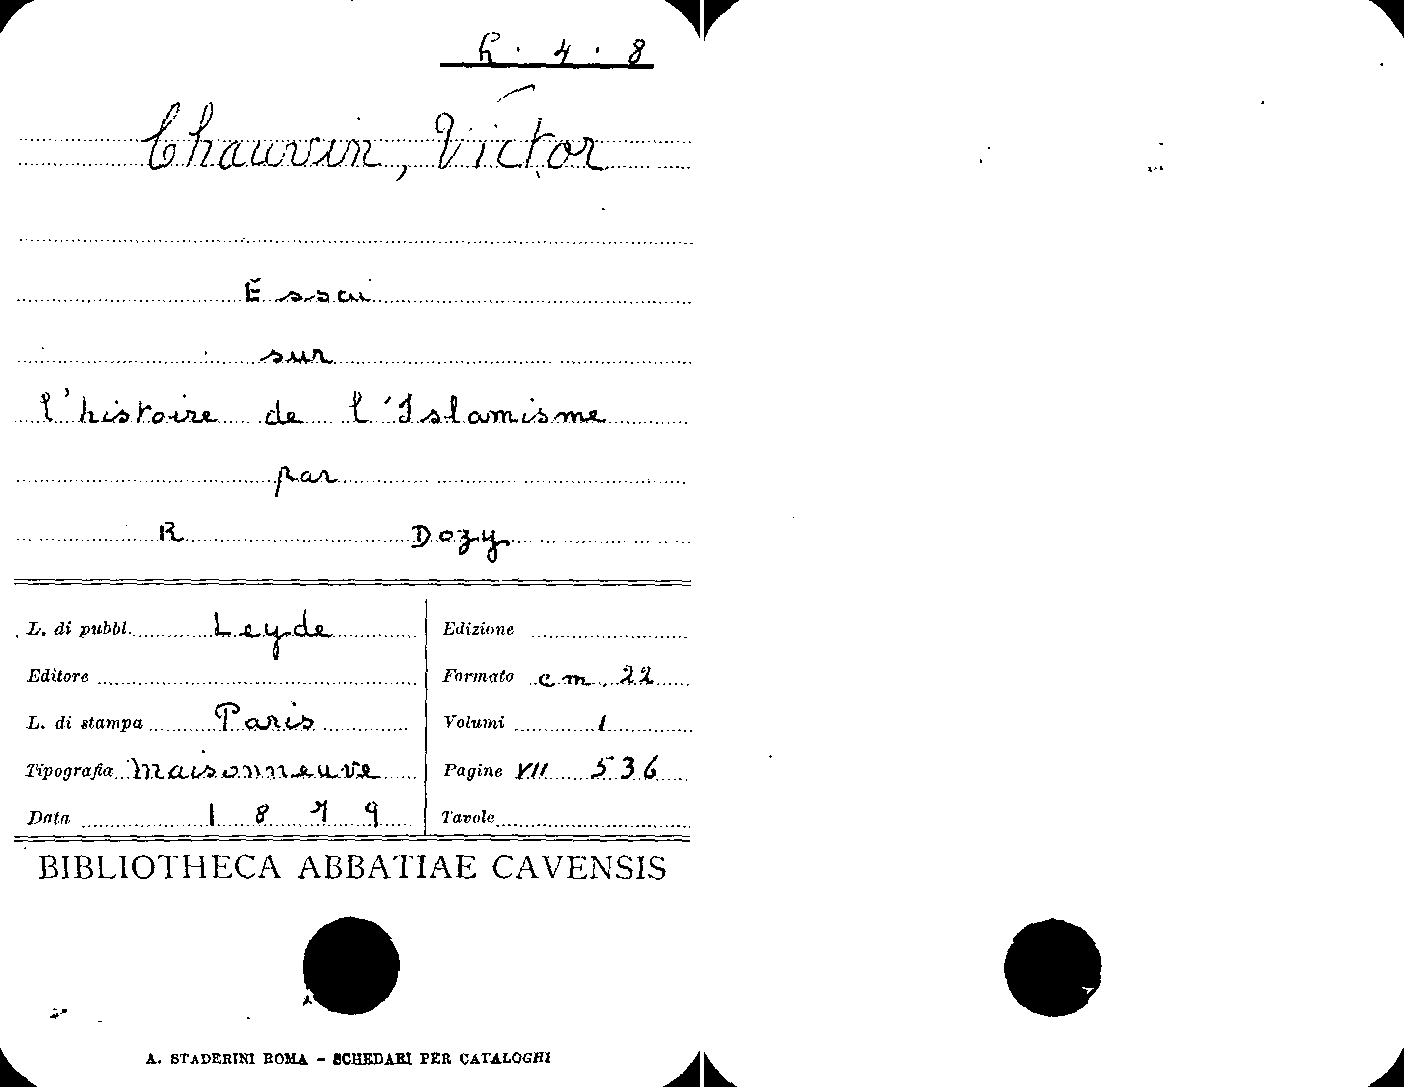 h . 4 . 8
Chauvin, Victor
Essai
sur
l'histoire de l'Islamisme
par
R Dozy
L. di pubbl. Leyde
Editore
L. di stampa Paris
Tipografia Maisonneuve
Data 1879
Edizione
Formato cm. 22
Volumi 1
Pagine VII 536
Tavole
BIBLIOTHECA ABBATIAE CAVENSIS
A. STADERINI ROMA - SCHEDARI PER CATALOGHI